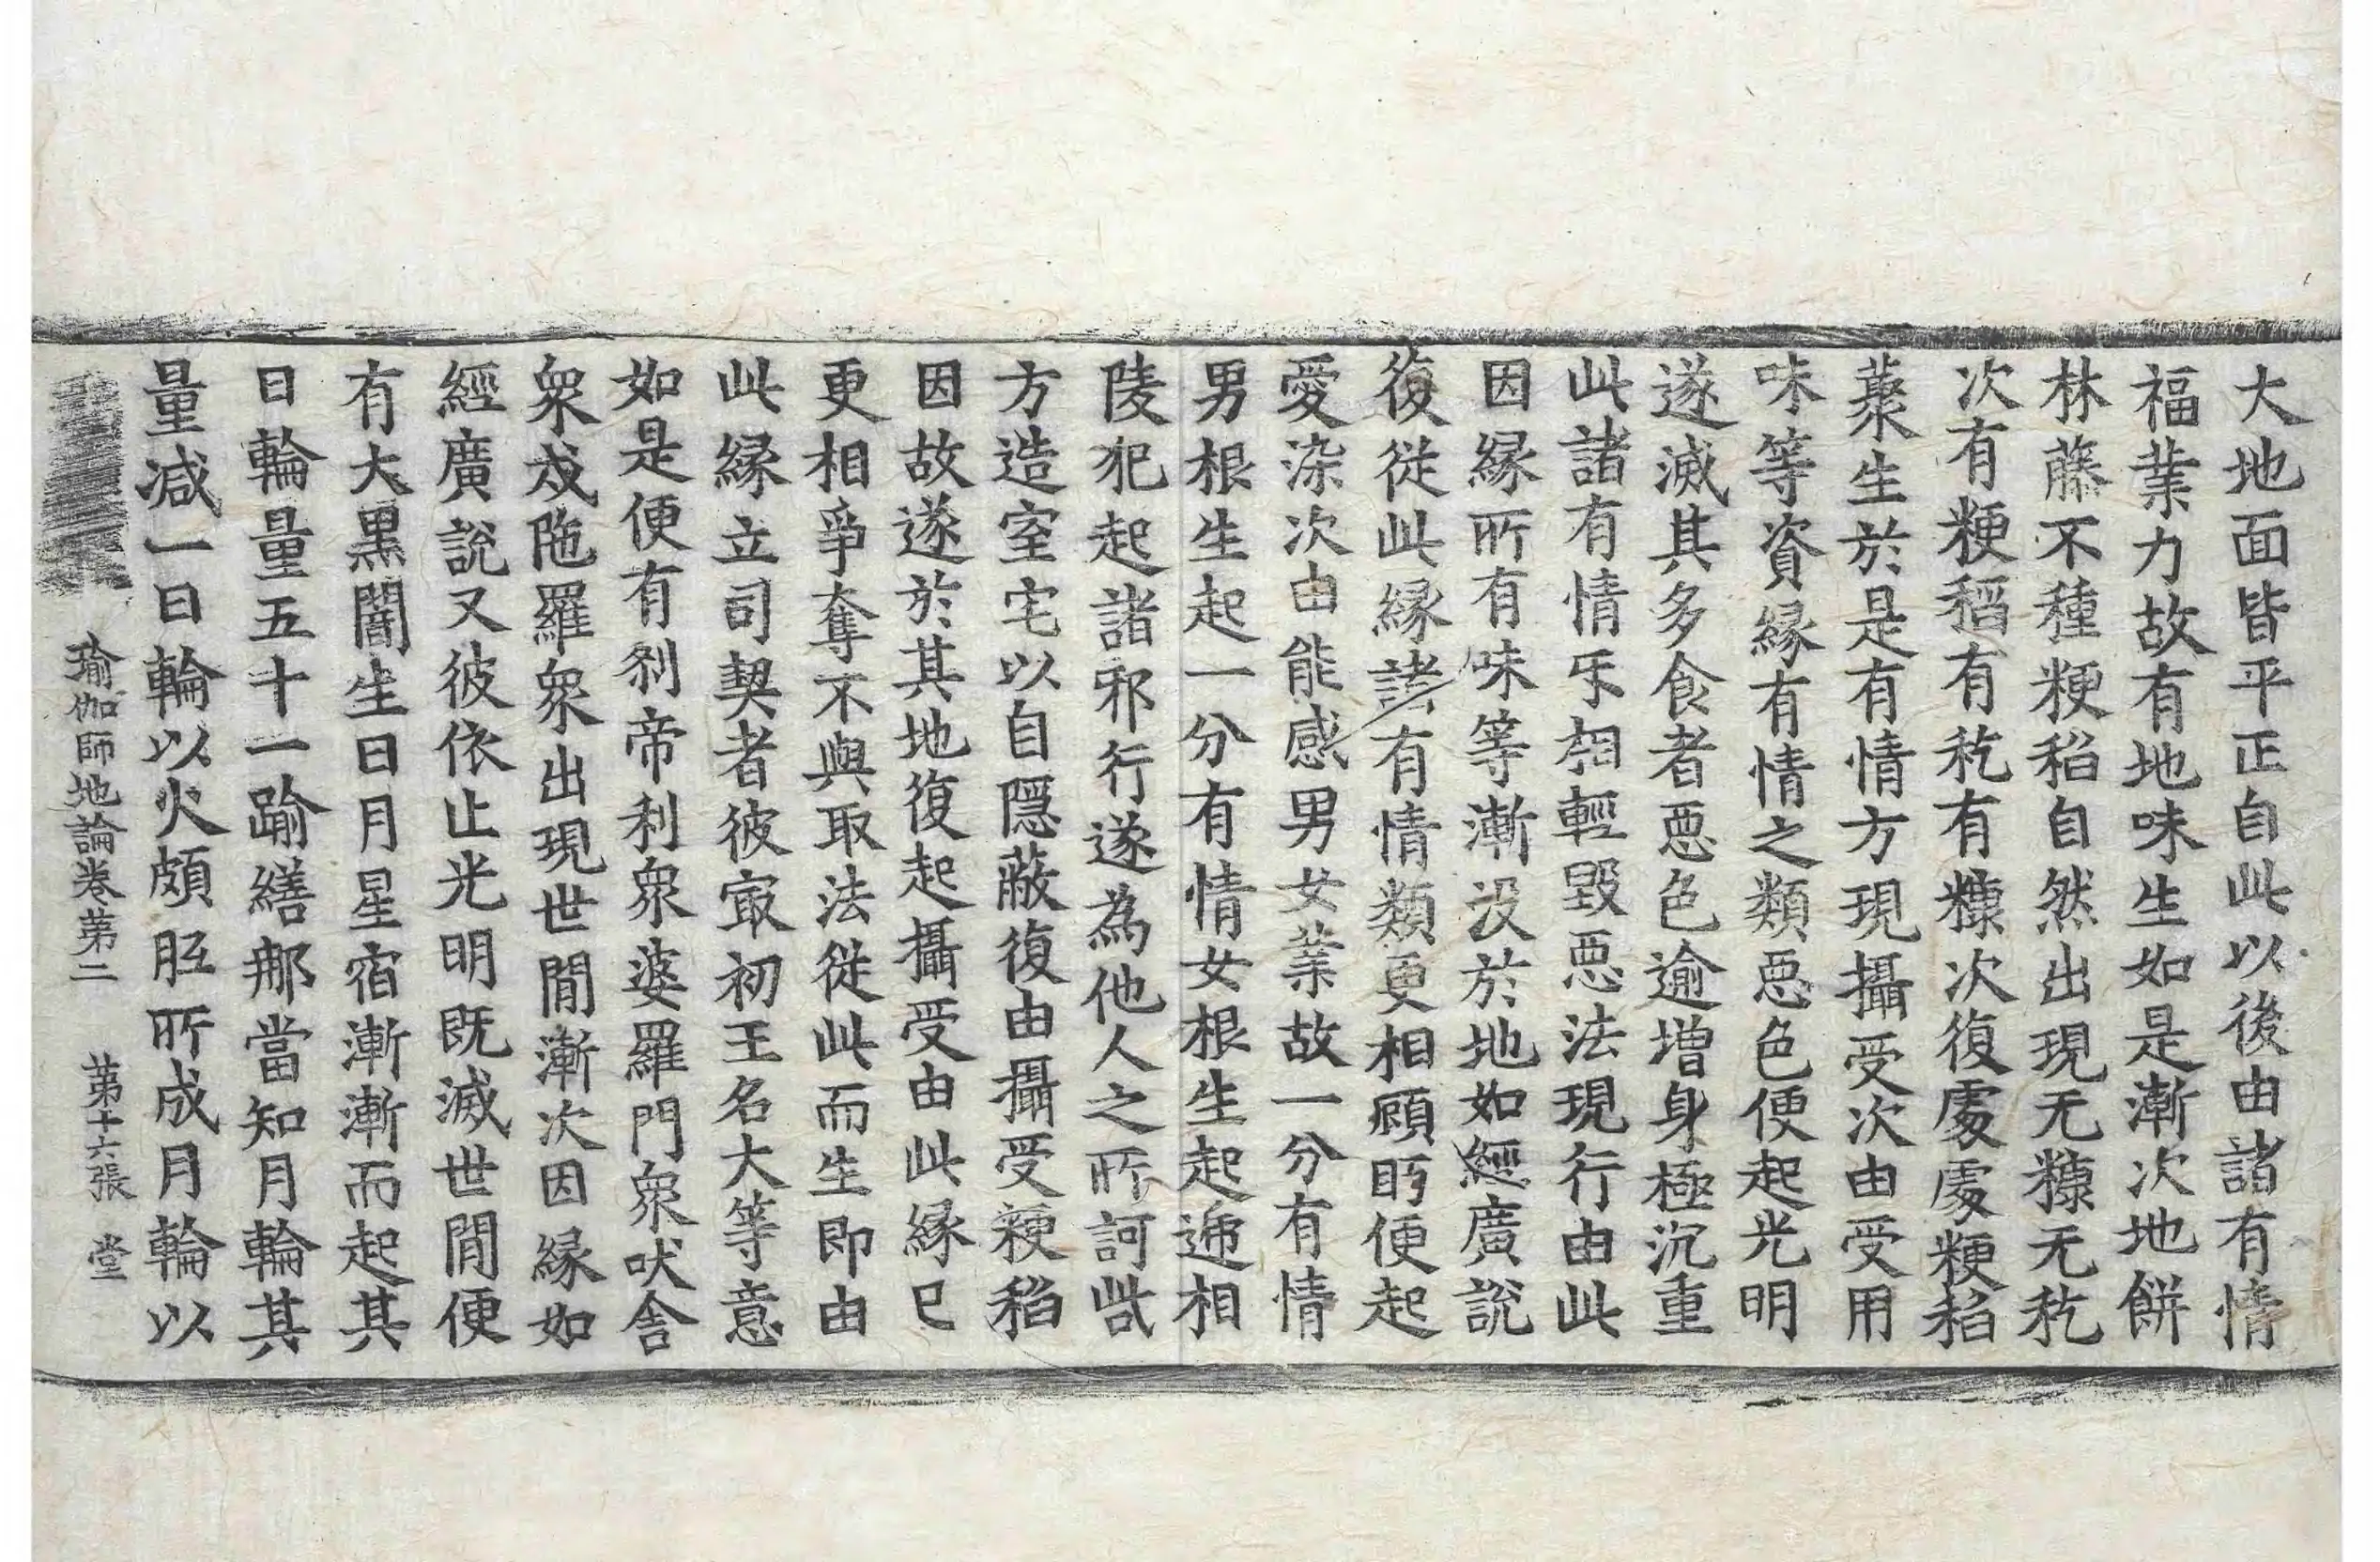 大地面皆平正自此以後由諸有情
福業力故有地味生如是漸次地餅
林藤不種粳稻自然出現无糠无䴬
次有粳稻有䴬有糠次復處處粳稻
藂生於是有情方現攝受次由受用
味等資縁有情之類惡色便起光明
遂滅其多食者惡色逾增身極沉重
此諸有情㸦相輕毀惡法現行由此
因縁所有味等漸没於地如經廣說
復從此縁諸有情類更相顧眄便起
愛染次由能感男女業故一分有情
男根生起一分有情女根生起遞相
陵犯起諸邪行遂為他人之所訶呰
方造室宅以自隱蔽復由攝受粳稻
因故遂於其地復起攝受由此縁已
更相爭奪不與取法從此而生即由
此縁立司契者彼㝡初王名大等意
如是便有刹帝利衆婆羅門衆吠舍
衆戍陁羅衆出現世間漸次因縁如
經廣說又彼依止光明既滅世間便
有大黒闇生日月星宿漸漸而起其
日輪量五十一踰繕那當知月輪其
量减一日輪以火頗胝所成月輪以
瑜伽師地論卷苐二 苐十六張 堂